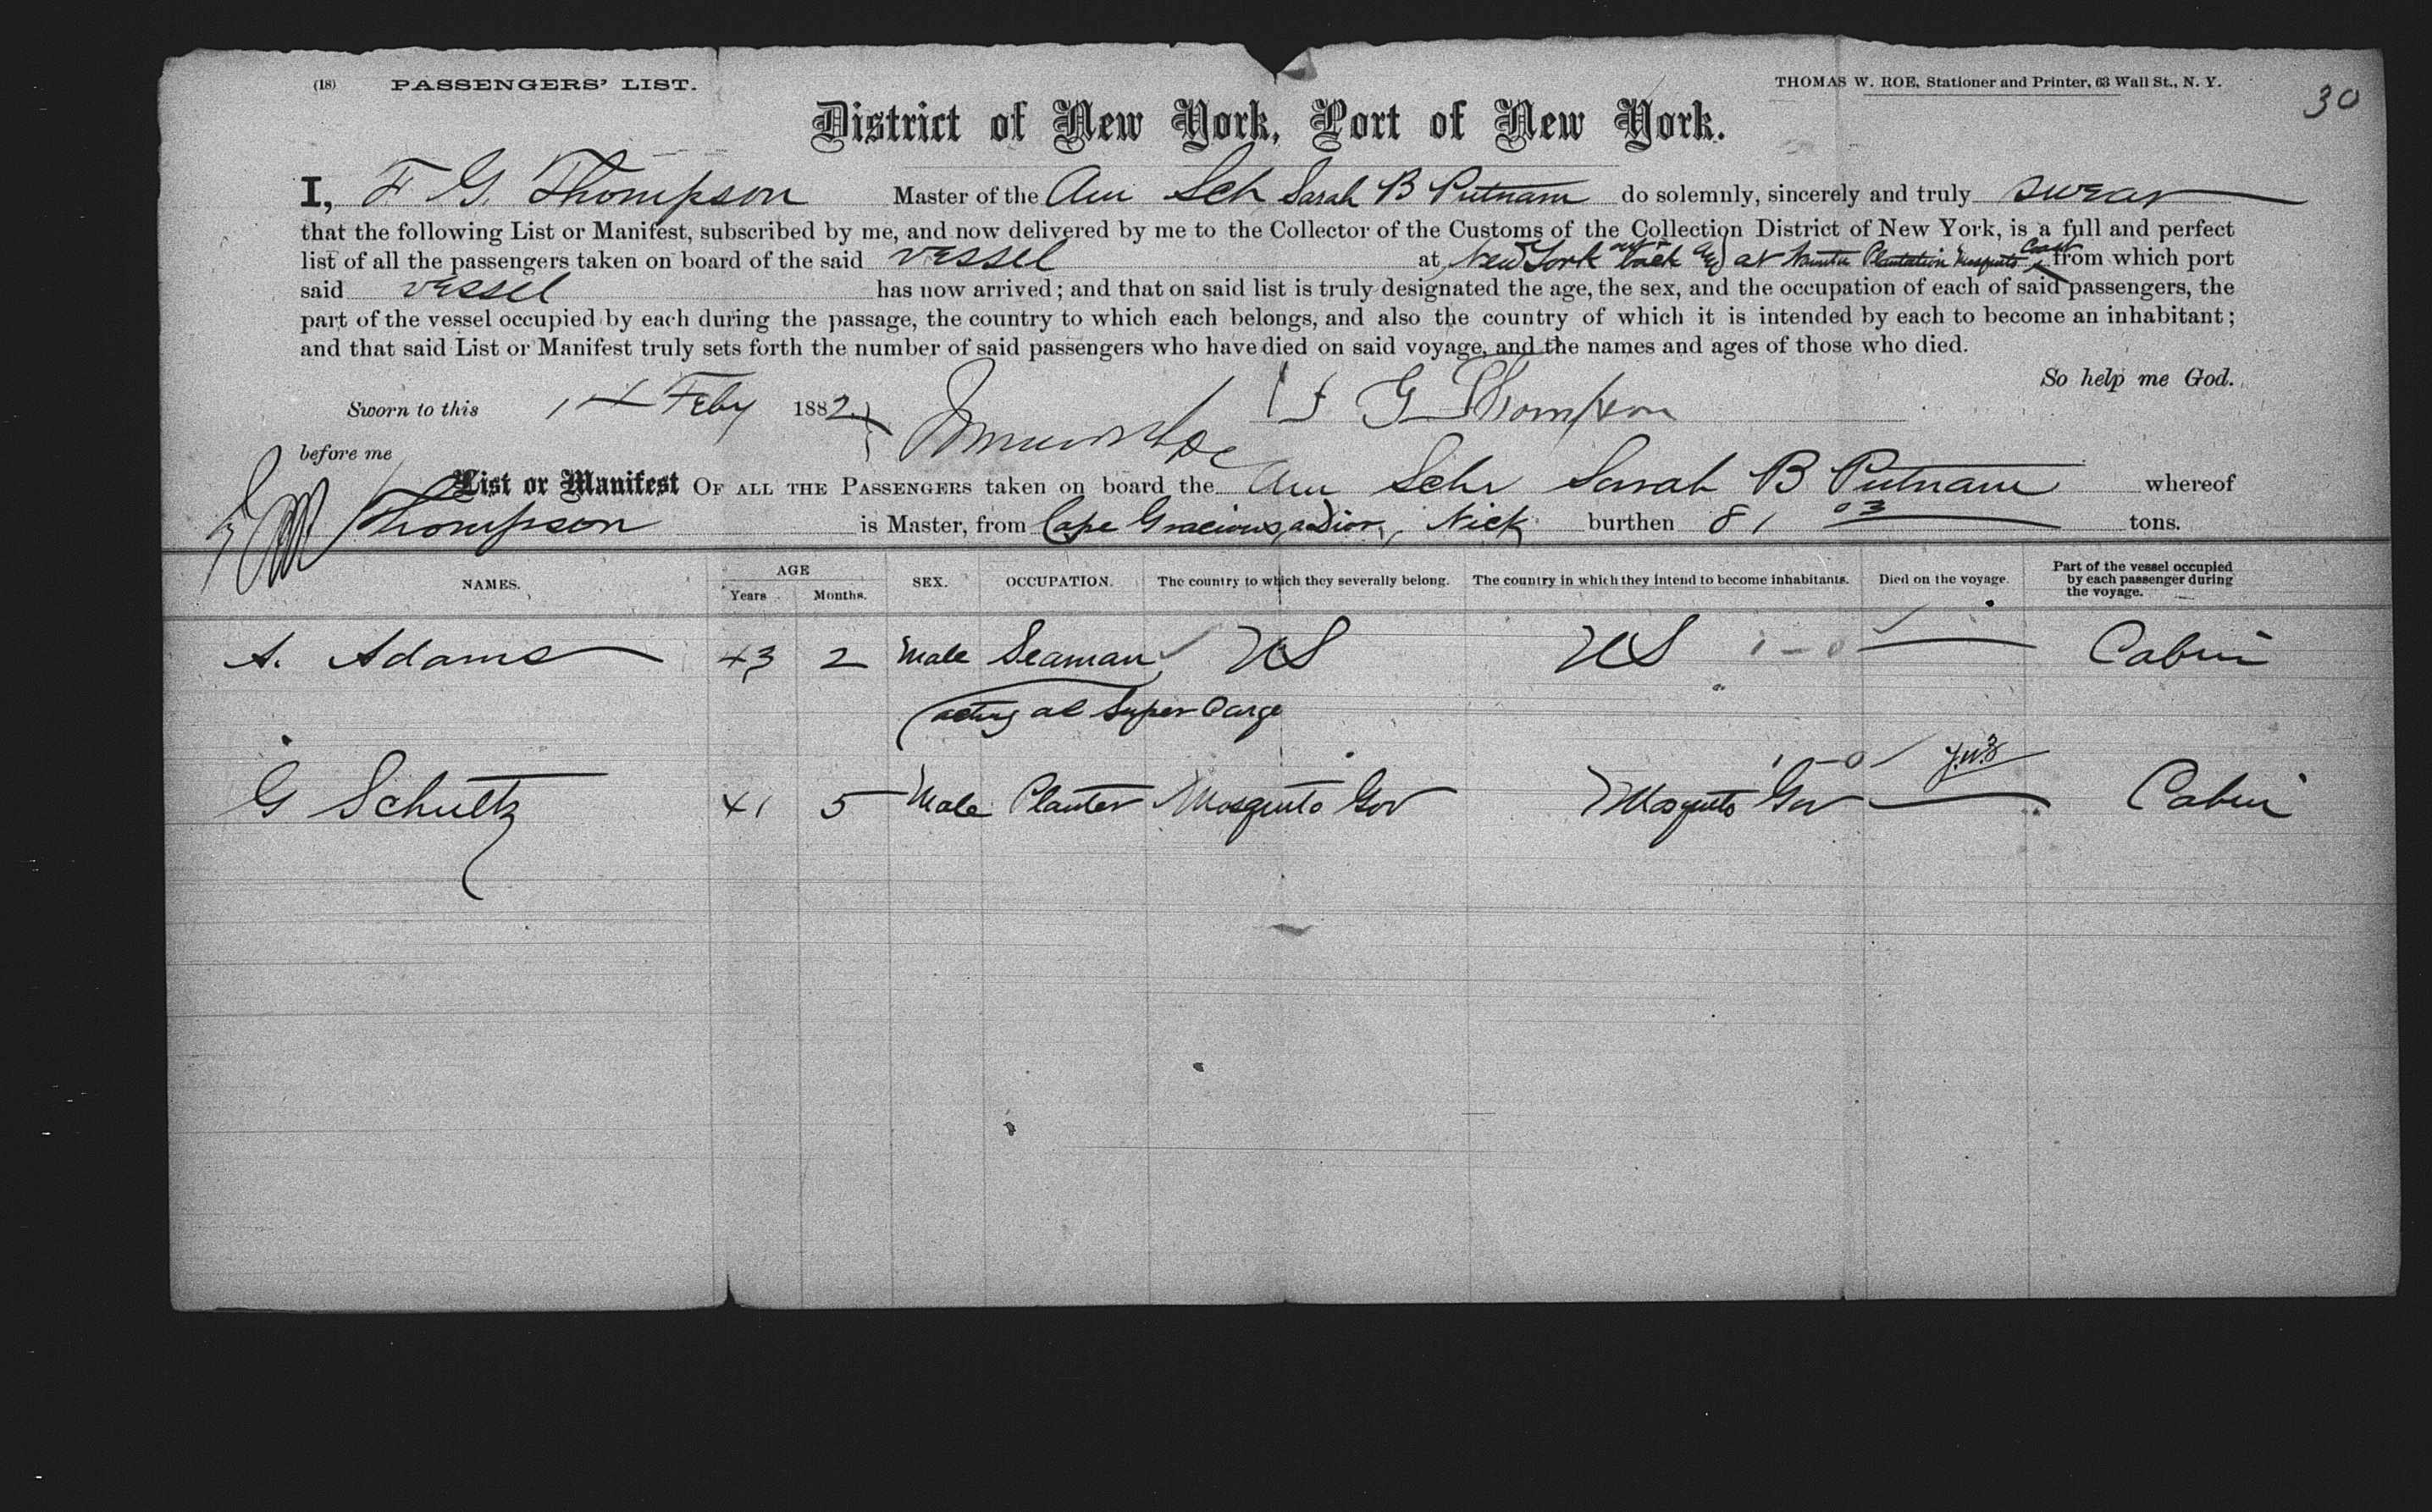 (18) PASSENGERS' LIST.
THOMAS W. ROE, Stationer and Printer, 63 Wall St., N. Y.
30
District of New York, Port of New York.
I, F G. Thompson Master of the Am Sch Sarah B Putnam do solemnly, sincerely and truly swear
that the following List or Manifest, subscribed by me, and now delivered by me to the Collector of the Customs of the Collection District of New York, is a full and perfect
list of all the passengers taken on board of the said vessel at New York back at Plantation Mosquito Coast from which port
said vessel has now arrived; and that on said list is truly designated the age, the sex, and the occupation of each of said passengers, the
part of the vessel occupied by each during the passage, the country to which each belongs, and also the country of which it is intended by each to become an inhabitant;
and that said List or Manifest truly sets forth the number of said passengers who have died on said voyage, and the names and ages of those who died.
So help me God.
Sworn to this 14 Feby 1882 F G Thompson
before me
List or Manifest OF ALL THE PASSENGERS taken on board the Am Schr Sarah B Putnam whereof
Thompson is Master, from Cape Gracious, a Dior, Nick burthen 81 03 tons.
NAMES. AGE Years Months. SEX. OCCUPATION. The country to which they severally belong. The country in which they intend to become inhabitants. Died on the voyage. Part of the vessel occupied by each passenger during the voyage.
A. Adams 43 2 Male Seaman US US 1-0 Cabin
(acting as Super Cargo
1-0
G Schultz 41 5 Male Planter Mosquito Gov Mosquito Gov Cabin